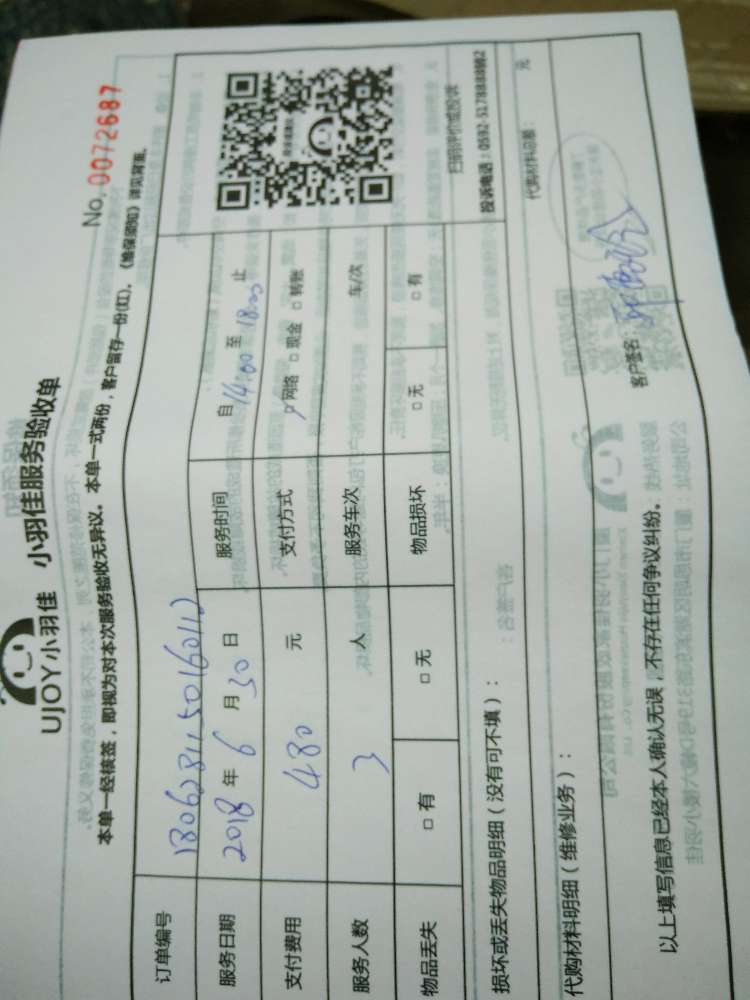 UJOY小羽佳 小羽佳服务验收单
No. 0072687
本单一经核签,即视为对本次服务验收无异议。本单一式两份,客户留存一份(红)。《维保须知》详见背面。
订单编号
服务日期 2018 年 6 月 30 日 服务时间 自 14:00 至 18:00 止
支付费用 480 元 支付方式 □网络 □现金 □转账
服务人数 3 人 服务车次 车/次
物品丢失 □有 □无 物品损坏 □无 □有
扫码评价或投诉
投诉电话:0592-5178888转802
损坏或丢失物品明细(没有可不填):
代购材料明细(维修业务): 代购材料总额: 元
以上填写信息已经本人确认无误,不存在任何争议纠纷。 客户签名: